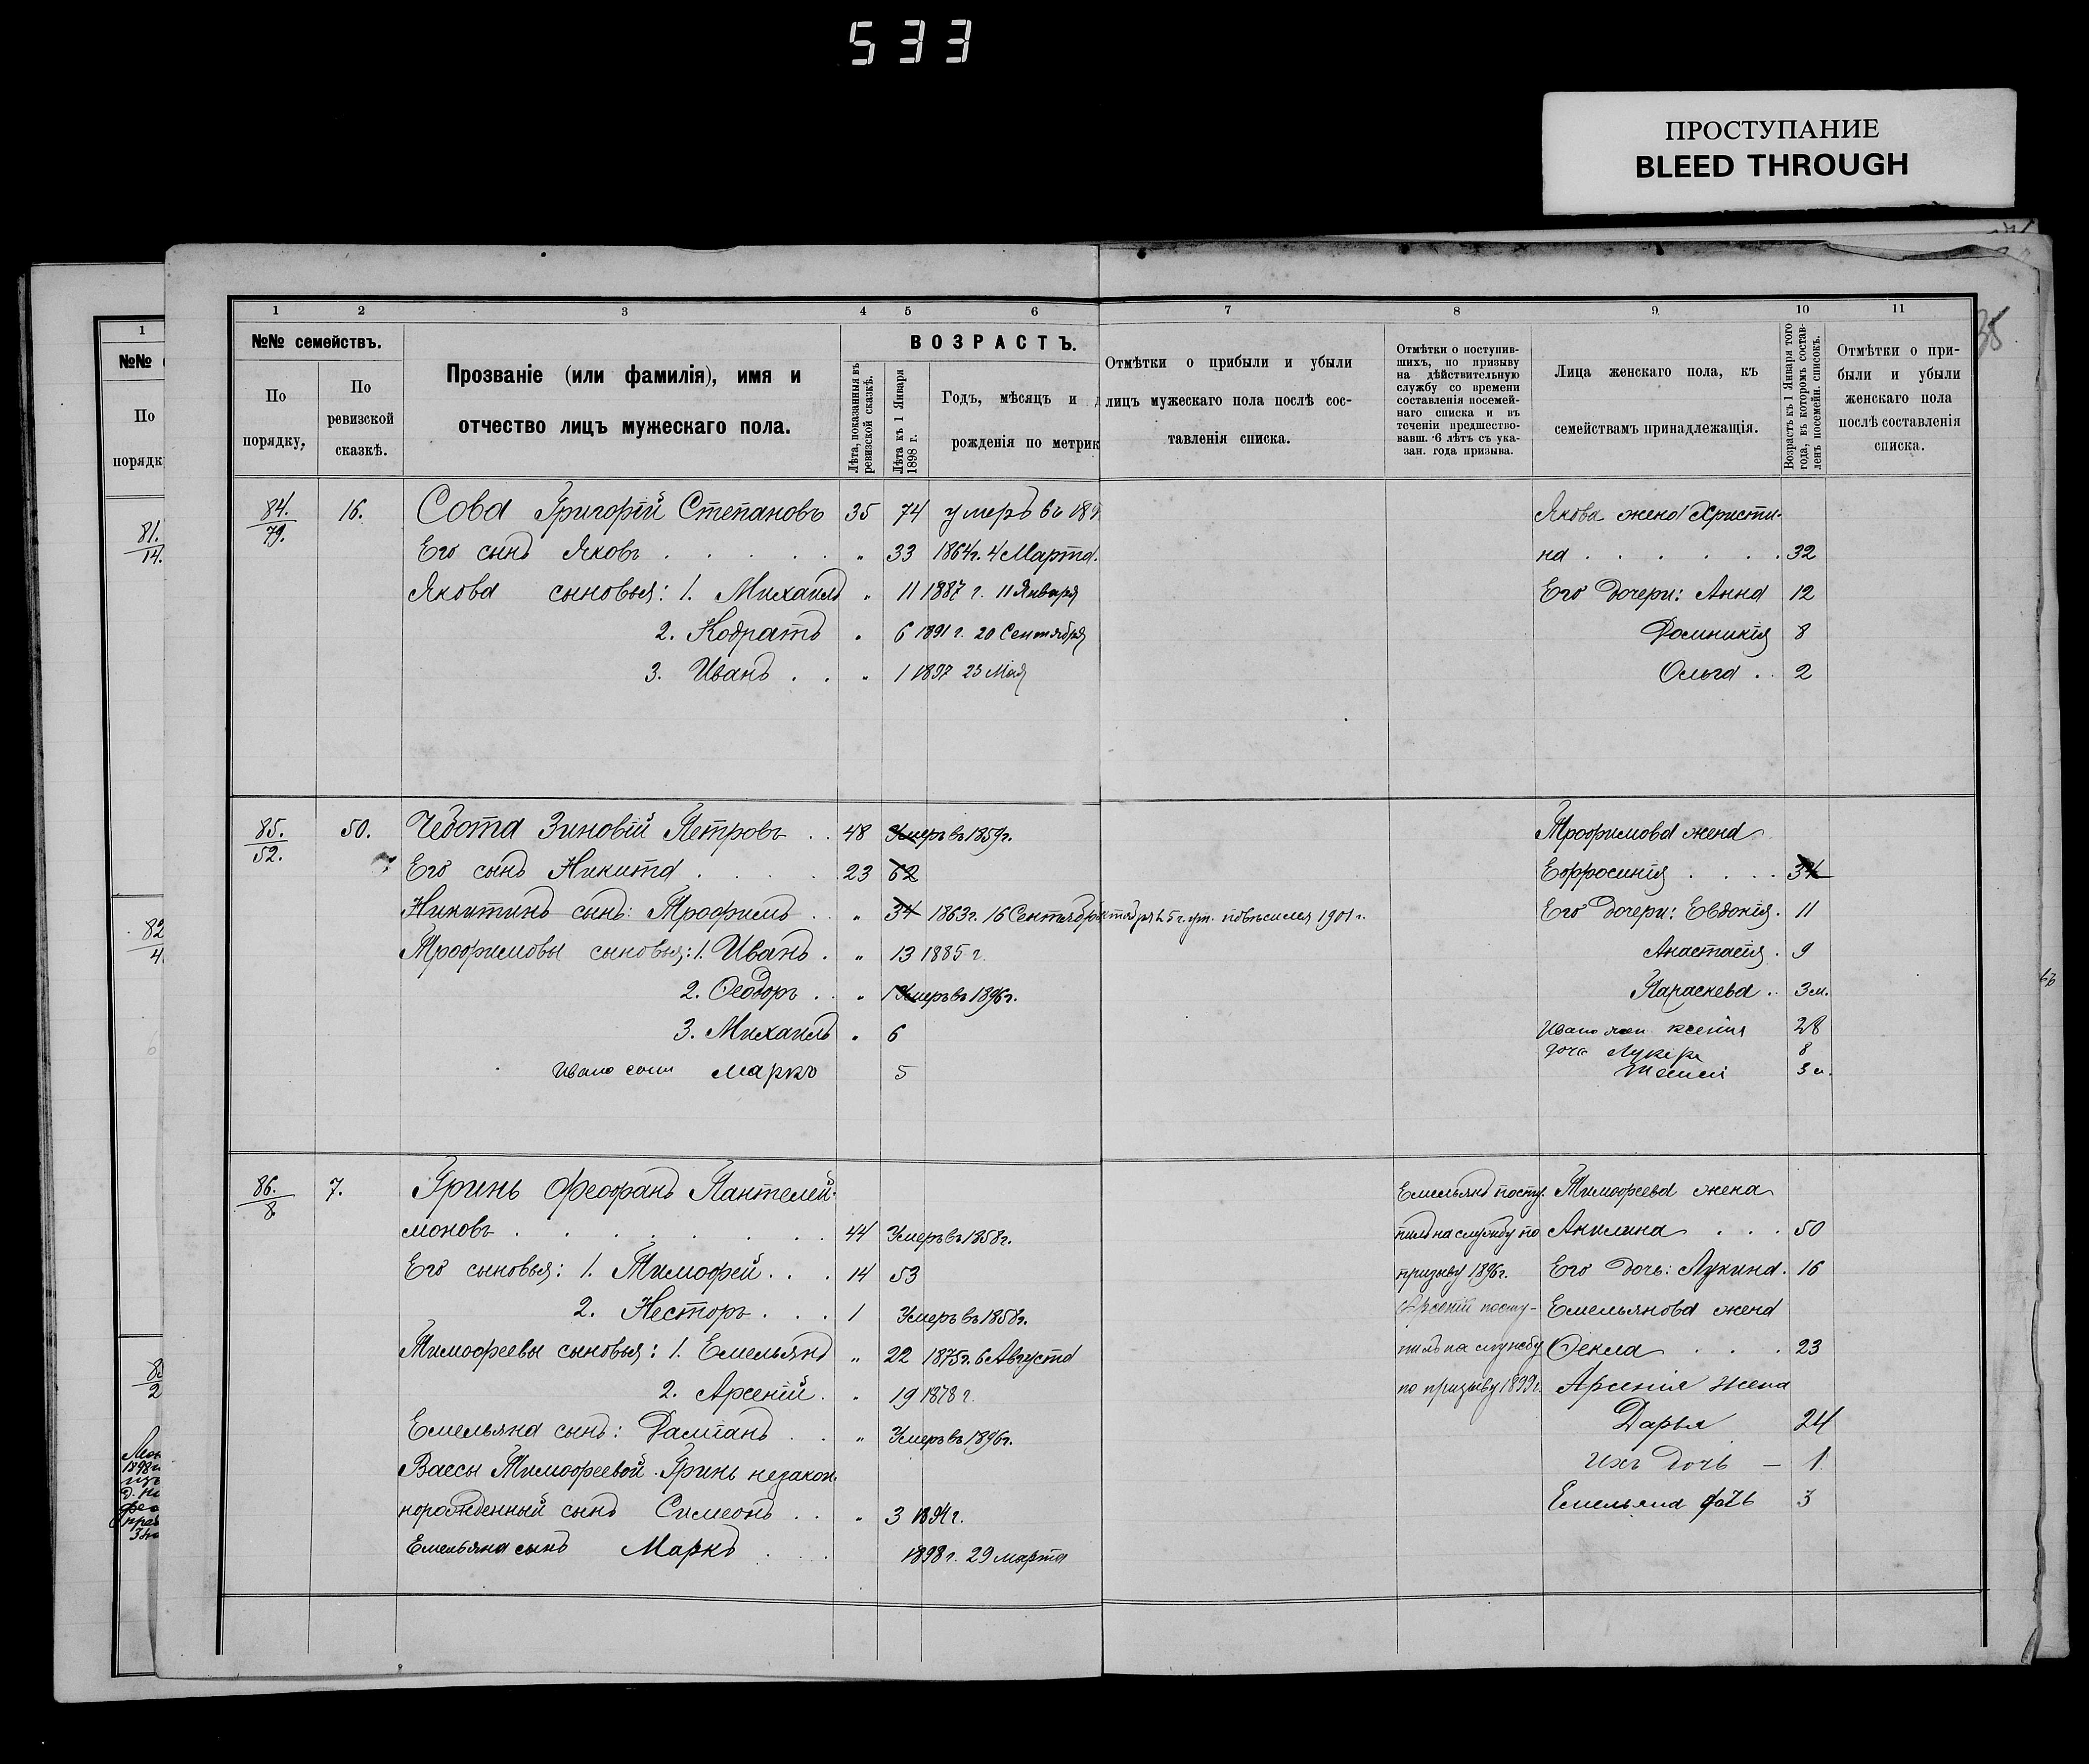 533
ПРОСТУПАНИЕ
BLEED THROUGH
35
1 2 3 4 5 6 7 8 9 10 11
№№ семействъ.
По порядку,
По ревизской сказкѣ.
Прозваніе (или фамилія), имя и
отчество лицъ мужескаго пола.
ВОЗРАСТЪ.
Лѣта, показанныя въ ревизской сказкѣ.
Лѣта къ 1 Января 1898 г.
Годъ, мѣсяцъ и
рожденія по метрик
Отмѣтки о прибыли и убыли
лицъ мужескаго пола послѣ сос-
тавленія списка.
Отмѣтки о поступив-
шихъ, по призыву
на дѣйствительную
службу со времени
составленія посемей-
наго списка и въ
теченіи предшество-
вавш. 6 лѣтъ съ ука-
зан. года призыва.
Лица женскаго пола, къ
семействамъ принадлежащія.
Возрастъ къ 1 Января того
года, въ которомъ состав-
ленъ посемейн. списокъ.
Отмѣтки о при-
были и убыли
женскаго пола
послѣ составленія
списка.
1
№№
По
порядк
81.
14.
82
4
8
2
84. 79. 16. Сова Григорій Степановъ 35 74 умеръ въ 189 Якова жена Христи-
Его сынъ Яковъ " 33 1864г. 4 Марта. на 32
Якова сыновья: 1. Михаилъ " 11 1887 г. 11 Января Его дочери: Анна 12
2. Кодратъ " 6 1891 г. 20 Сентября Домникія 8
3. Иванъ " 1 1897 23 Мая Ольга 2
85. 52. 50. Чебота Зиновій Петровъ 48 Умеръ въ 1859г. Трофимова жена
Его сынъ Никита 23 62 Ефросинія 34
Никитинъ сынъ: Трофимъ " 34 1863г. 16 Сентября повѣсился 1901 г. Его дочери: Евдокія 11
Трофимовы сыновья: 1. Иванъ " 13 1885 г. Анастасія 9
2. Ѳеодоръ " Умеръ въ 1896г. Параскева 3 м.
3. Михаилъ " 6 Ивано жен ксенія 28
доч Лукер 8
Ивано сын марко 5 3 м.
86. 8. 7. Гринь Феофанъ Пантелей- Емельянъ посту- Тимофеева жена
моновъ 44 Умеръ въ 1858г. пилъ на службу по Акилина 50
Его сыновья: 1. Тимофей 14 53 призыву 1896г. Его дочь: Лукина 16
2. Несторъ 1 Умеръ въ 1858г. Арсеній посту- Емельянова жена
Тимофеевы сыновья: 1. Емельянъ " 22 1875г. 6 Августа пилъ на службу Ѳекла 23
2. Арсеній " 19 1878 г. по призыву 1899г. Арсенія жена
Емельяна сынъ: Даміанъ " Умеръ въ 1896г. Дарья 24
Вассы Тимофеевой Гринь незакон- Ихъ дочь — 1
норожденный сынъ Симеонъ " 3 1894г. Емельяна дочь 3
Емельяна сынъ Маркъ 1898г. 29 марта